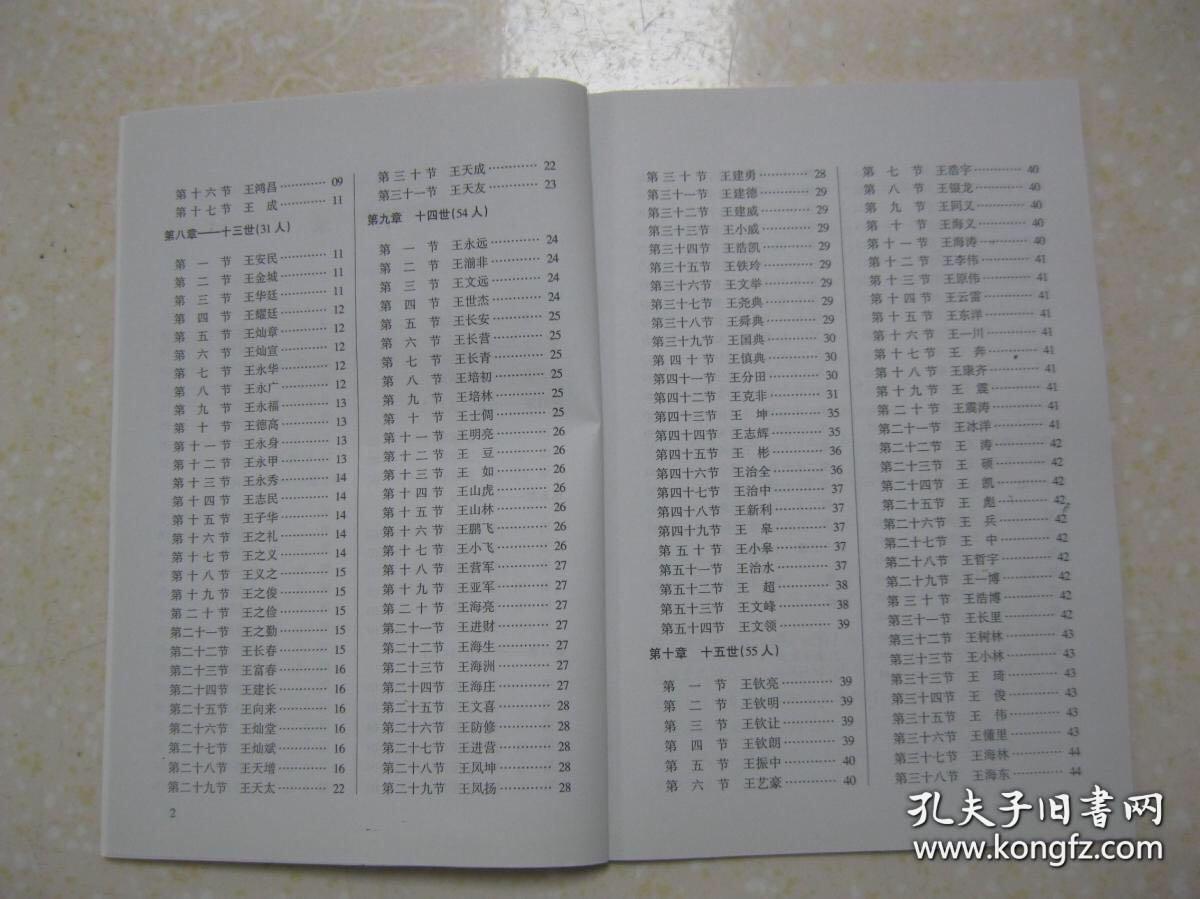 第十六节 王鸿昌············09
第十七节 王 成············11
第八章——十三世(31人)
第一节 王安民············11
第二节 王金城············11
第三节 王华廷············11
第四节 王耀廷············12
第五节 王灿章············12
第六节 王灿宣············12
第七节 王永华············12
第八节 王永广············12
第九节 王永福············13
第十节 王德高············13
第十一节 王永身············13
第十二节 王永甲············13
第十三节 王永秀············14
第十四节 王志民············14
第十五节 王子华············14
第十六节 王之礼············14
第十七节 王之义············14
第十八节 王义之············15
第十九节 王之俊············15
第二十节 王之俭············15
第二十一节 王之勤············15
第二十二节 王长春············15
第二十三节 王富春············16
第二十四节 王建长············16
第二十五节 王向来············16
第二十六节 王灿堂············16
第二十七节 王灿斌············16
第二十八节 王天增············16
第二十九节 王天太············22
2
第三十节 王天成············22
第三十一节 王天友············23
第九章 十四世(54人)
第一节 王永远············24
第二节 王湔非············24
第三节 王文远············24
第四节 王世杰············24
第五节 王长安············25
第六节 王长营············25
第七节 王长青············25
第八节 王培初············25
第九节 王培林············25
第十节 王士倜············25
第十一节 王明亮············26
第十二节 王 豆············26
第十三节 王 如············26
第十四节 王山虎············26
第十五节 王山林············26
第十六节 王鹏飞············26
第十七节 王小飞············26
第十八节 王营军············27
第十九节 王亚军············27
第二十节 王海亮············27
第二十一节 王进财············27
第二十二节 王海生············27
第二十三节 王海洲············27
第二十四节 王海庄············27
第二十五节 王文喜············28
第二十六节 王防修············28
第二十七节 王进营············28
第二十八节 王凤坤············28
第二十九节 王凤扬············28
第三十节 王建勇············28
第三十一节 王建德············29
第三十二节 王建威············29
第三十三节 王小威············29
第三十四节 王浩凯············29
第三十五节 王铁玲············29
第三十六节 王文举············29
第三十七节 王尧典············29
第三十八节 王舜典············29
第三十九节 王国典············30
第四十节 王慎典············30
第四十一节 王分田············30
第四十二节 王克非············31
第四十三节 王 坤············35
第四十四节 王志辉············35
第四十五节 王 彬············36
第四十六节 王治全············36
第四十七节 王治中············37
第四十八节 王新利············37
第四十九节 王 皋············37
第五十节 王小皋············37
第五十一节 王治水············37
第五十二节 王 超············38
第五十三节 王文峰············38
第五十四节 王文领············39
第十章 十五世(55人)
第一节 王钦亮············39
第二节 王钦明············39
第三节 王钦让············39
第四节 王钦朗············39
第五节 王振中············40
第六节 王艺豪············40
第七节 王浩宇············40
第八节 王银龙············40
第九节 王同义············40
第十节 王海义············40
第十一节 王海涛············40
第十二节 王李伟············41
第十三节 王原伟············41
第十四节 王云雷············41
第十五节 王东洋············41
第十六节 王一川············41
第十七节 王 奔············41
第十八节 王康齐············41
第十九节 王 震············41
第二十节 王震涛············41
第二十一节 王冰洋············41
第二十二节 王 涛············42
第二十三节 王 硕············42
第二十四节 王 凯············42
第二十五节 王 彪············42
第二十六节 王 兵············42
第二十七节 王 中············42
第二十八节 王哲宇············42
第二十九节 王一博············42
第三十节 王浩博············42
第三十一节 王长里············42
第三十二节 王树林············43
第三十三节 王小林············43
第三十四节 王 琦············43
第三十四节 王 俊············43
第三十五节 王 伟············43
第三十六节 王懂里············43
第三十七节 王海林············44
第三十八节 王海东············44
孔夫子旧书网
www.kongfz.com